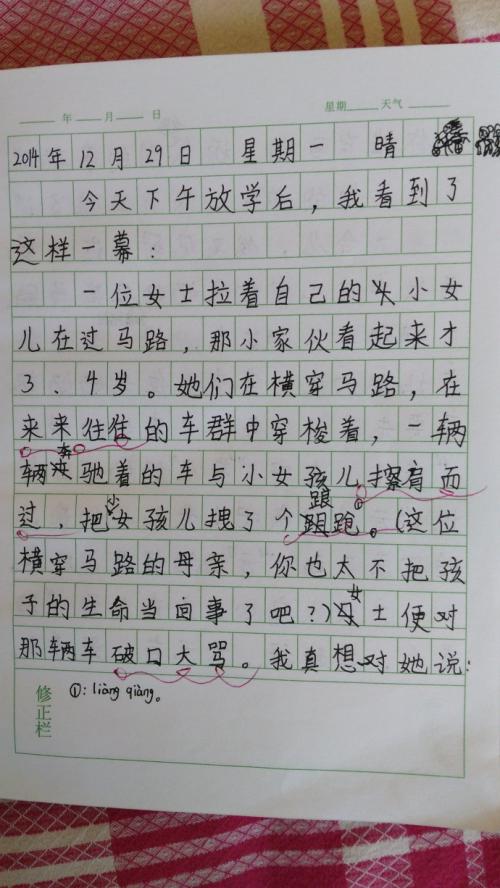 年 月 日 星期 天气
2014年12月29日 星期一 晴
今天下午放学后，我看到了
这样一幕：
一位女士拉着自己的小女
儿在过马路，那小家伙看起来才
3、4岁。她们在横穿马路，在
来来往往的车群中穿梭着，一辆
辆奔驰着的车与小女孩儿擦肩而
过，把小女孩儿拽了个踉跄①。（这位
横穿马路的母亲，你也太不把孩
子的生命当回事了吧？）女士便对
那辆车破口大骂。我真想对她说：
①：liàng qiàng。
修正栏